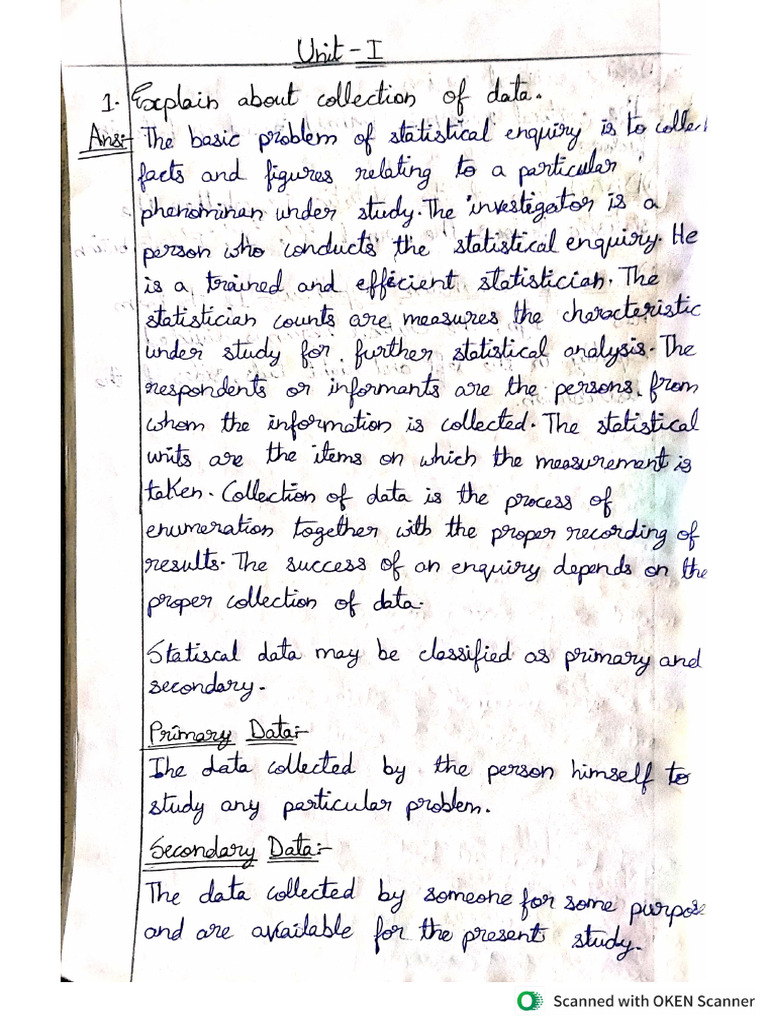 Unit - I
1. Explain about collection of data.
Ans:- The basic problem of statistical enquiry is to collec
facts and figures relating to a particular
phenominan under study. The investigator is a
person who conducts the statistical enquiry. He
is a trained and efficient statistician. The
statistician counts are measures the characteristic
under study for further statistical analysis. The
respondents or informants are the persons from
whom the information is collected. The statistical
units are the items on which the measurement is
taken. Collection of data is the process of
enumeration together with the proper recording of
results. The success of an enquiry depends on the
proper collection of data.
Statiscal data may be classified as primary and
secondary.
Primary Data:-
The data collected by the person himself to
study any particular problem.
Secondary Data:-
The data collected by someone for some purpose
and are available for the present study.
Scanned with OKEN Scanner